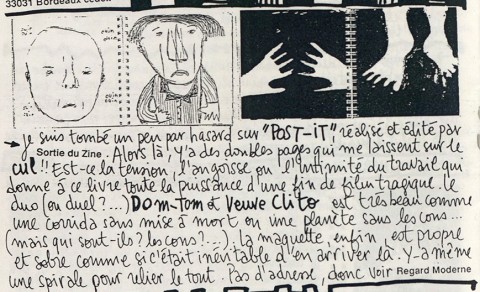 33031 Bordeaux cedex
→ je suis tombé un peu par hasard sur "POST-IT" réalisé et édité par
Sortie du Zine. Alors là, y'a des doubles pages qui me laissent sur le
cul!! Est-ce la tension, l'angoisse ou l'intimité du travail qui
donne à ce livre toute la puissance d'une fin de film tragique. Le
duo (ou duel?...) Dom-Tom et Veuve Clito est très beau comme
une corrida sans mise à mort ou une planète sans les cons...
(mais qui sont-ils? les cons?...). La maquette, enfin, est propre
et sobre comme si c'était inévitable d'en arriver là. Y-a même
une spirale pour relier le tout. Pas d'adresse, donc Voir Regard Moderne